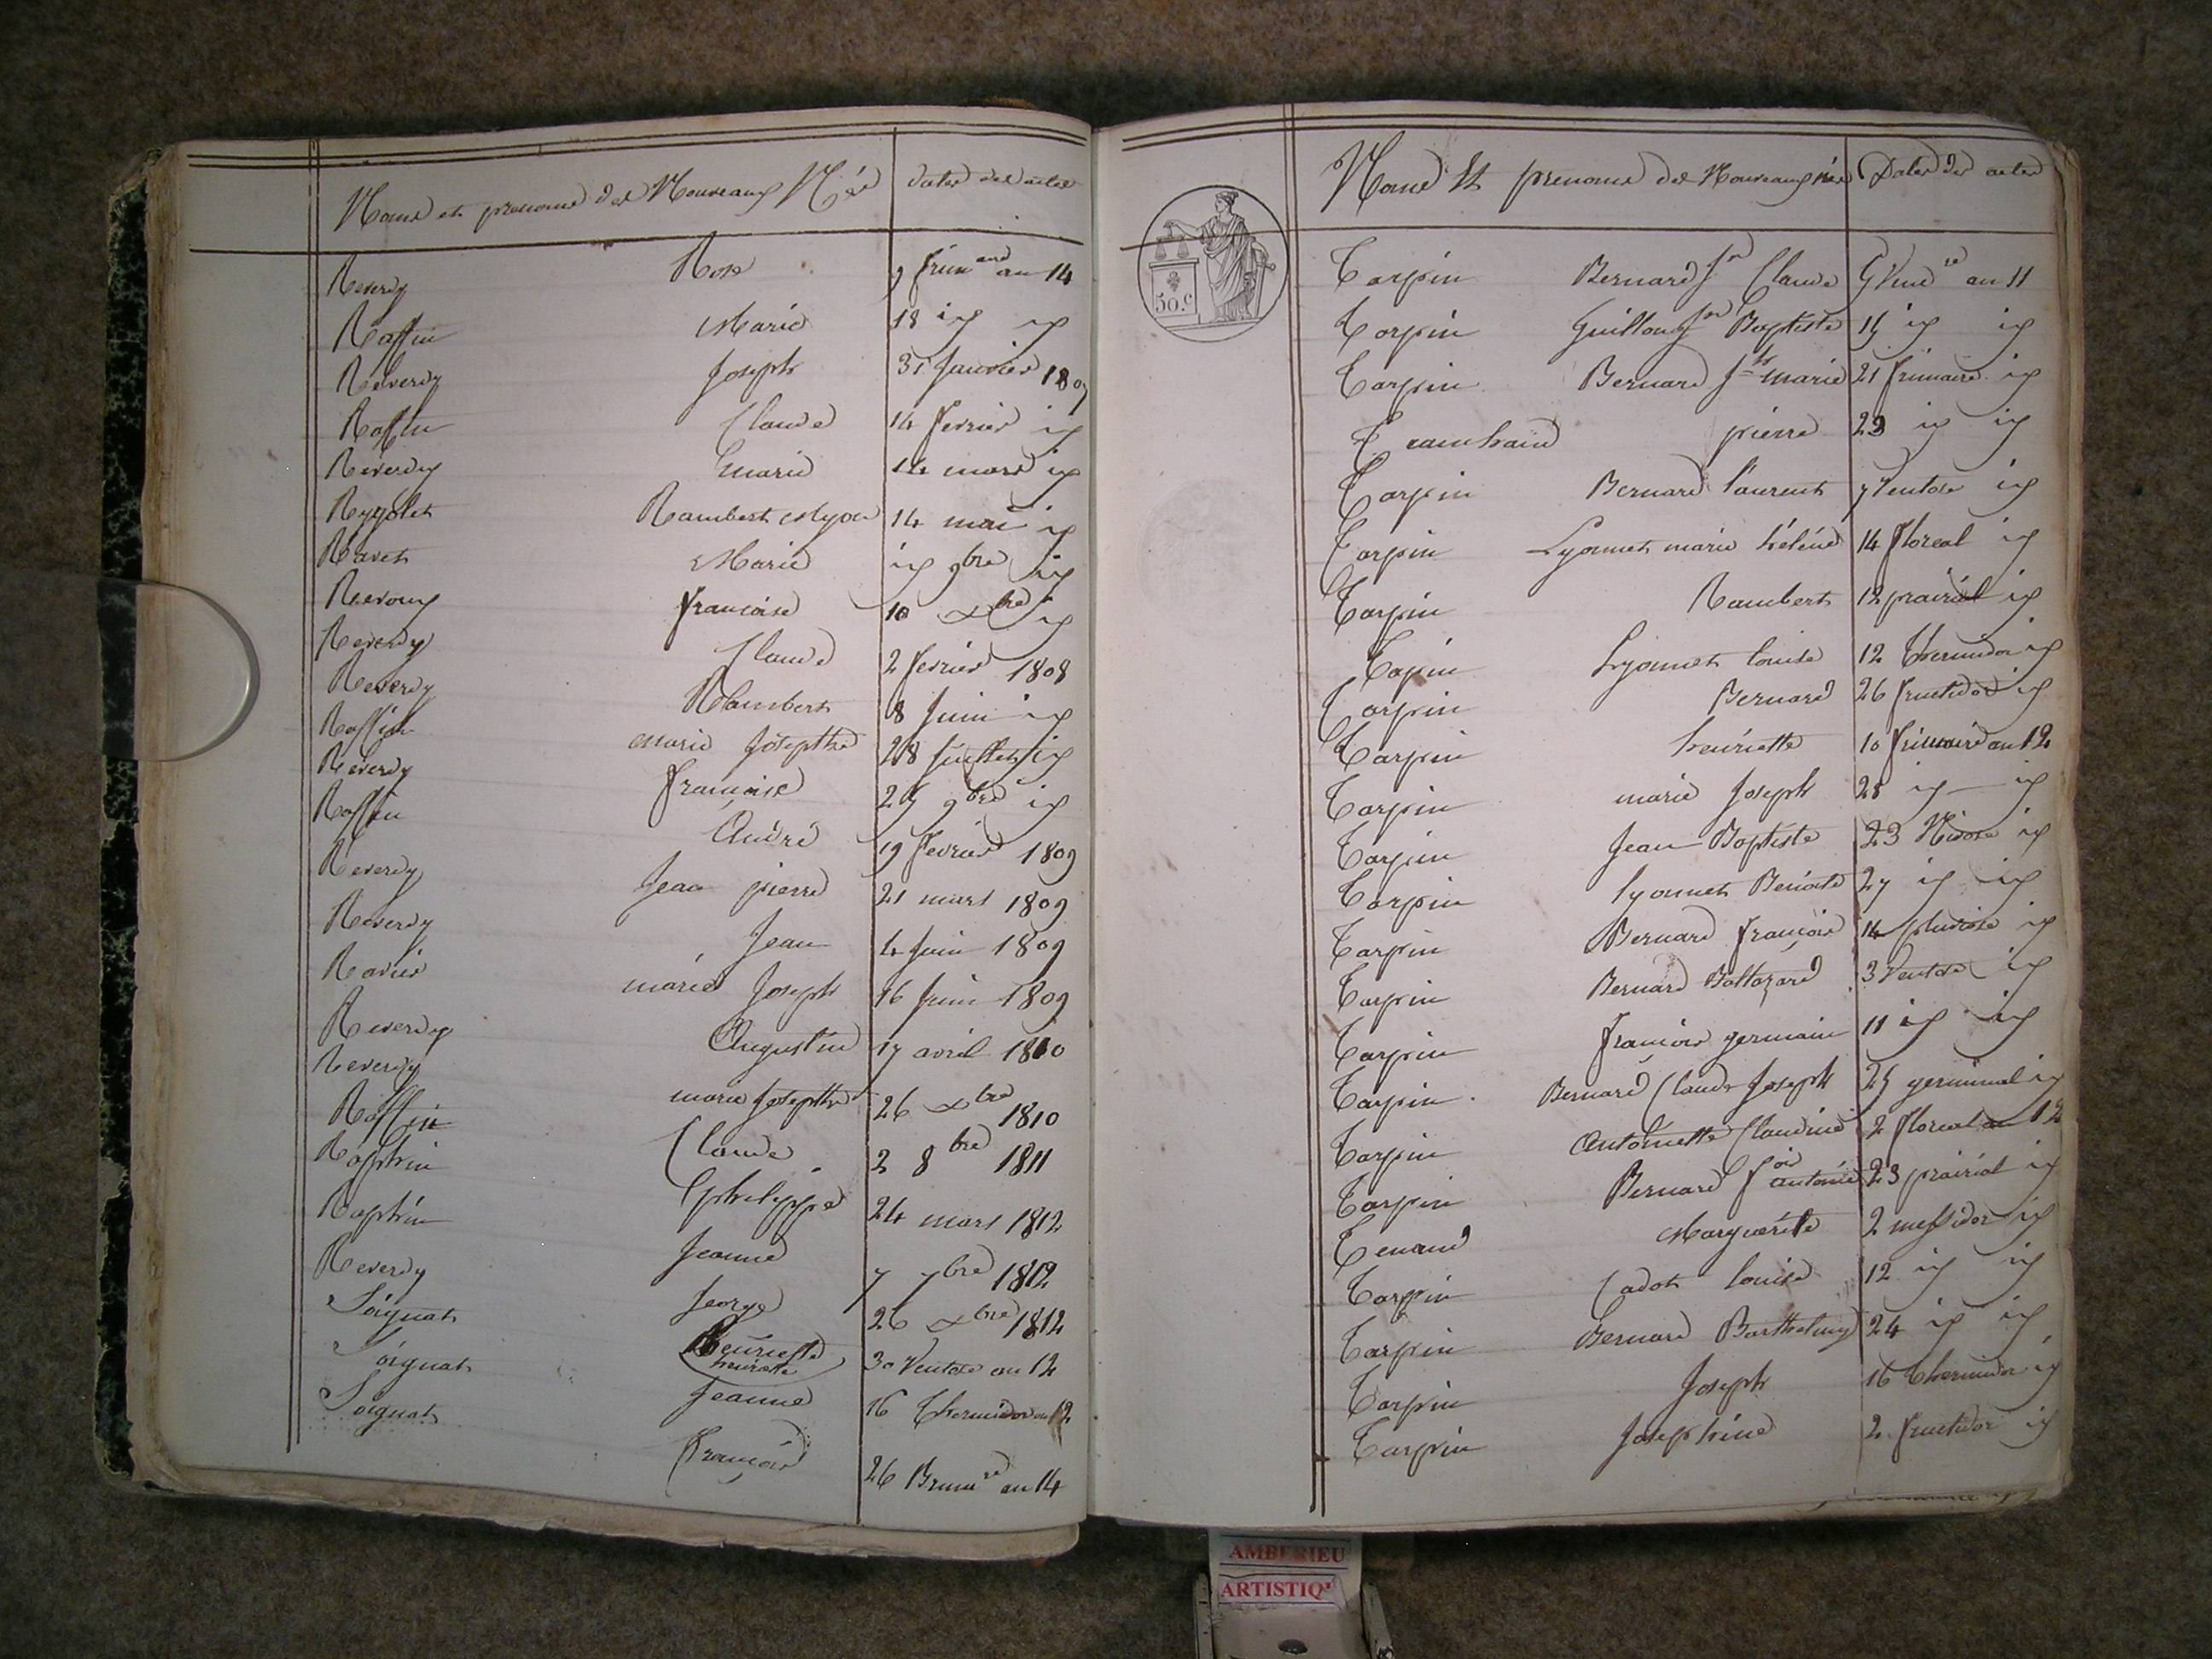 Noms et prenoms des Nouveaux Nés dates des actes
Reverdy Rose 9 frimaire an 14
Raffin Marie 18 id id
Reverdy Joseph 31 Janvier 1807
Raffin Claude 14 fevrier id
Reverdy marie 14 mars id
Rambert 14 mai id
Ravet Marie id 9bre id
françoise 10 xbre id
Reverdy Claude 2 fevrier 1808
Reverdy Rambert 8 Juin id
Raffin marie Josepthe 28 Juillet id
Reverdy françoise 25 9bre id
Raffin André 19 fevrier 1809
Reverdy Jean pierre 21 mars 1809
Reverdy Jean 4 Juin 1809
Ravier marie Joseph 16 Juin 1809
Reverdy Augustin 17 avril 1810
Reverdy marie Josepthe 26 xbre 1810
Raffin Claude 2 8bre 1811
Raphin philippe 24 mars 1812
Raphin Jeanne 7 7bre 1812
Reverdy George 26 xbre 1812
Soignat henriette 30 Ventose an 12
Soignat Jeanne 16 thermidor an 12
Soignat François 26 Brumre an 14
Noms Et prenoms des Nouveaux nés Dates des actes
50.c
Tarpin Bernard Jn Claude 5 Vendre an 11
Tarpin Guillon Jn Baptiste 15 id id
Tarpin Bernard Jh marie 21 frimaire id
pierre 23 id id
Tarpin Bernard laurent 7 Ventose id
Tarpin Lyonnet marie hélène 14 floreal id
Tarpin Rambert 12 prairial id
Tapin Lyonnet louise 12 thermidor id
Tarpin Bernard 26 fructidor id
Tarpin henriette 10 frimaire an 12
Tarpin marie Joseph 28 id id
Tarpin Jean Baptiste 23 Nivose id
Tarpin lyonnet Benoite 27 id id
Tarpin Bernard françois 14 pluviose id
Tarpin Bernard Baltazard 3 Ventose id
Tarpin françois germain 11 id id
Tarpin Bernard Claude Joseph 25 germinal id
Tarpin Antoinette Claudine 2 floreal an 12
Tarpin Bernard fois antoine 23 prairial id
Tenand Marguerite 2 messidor id
Tarpin Cadot louise 12 id id
Tarpin Bernard Barthelmy 24 id id
Tarpin Joseph 16 thermidor id
Tarpin Josephine 2 fructidor id
AMBERIEU
ARTISTIQ